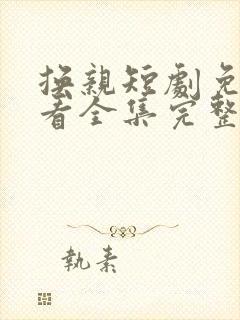 換親短劇免
看全集完整
執素